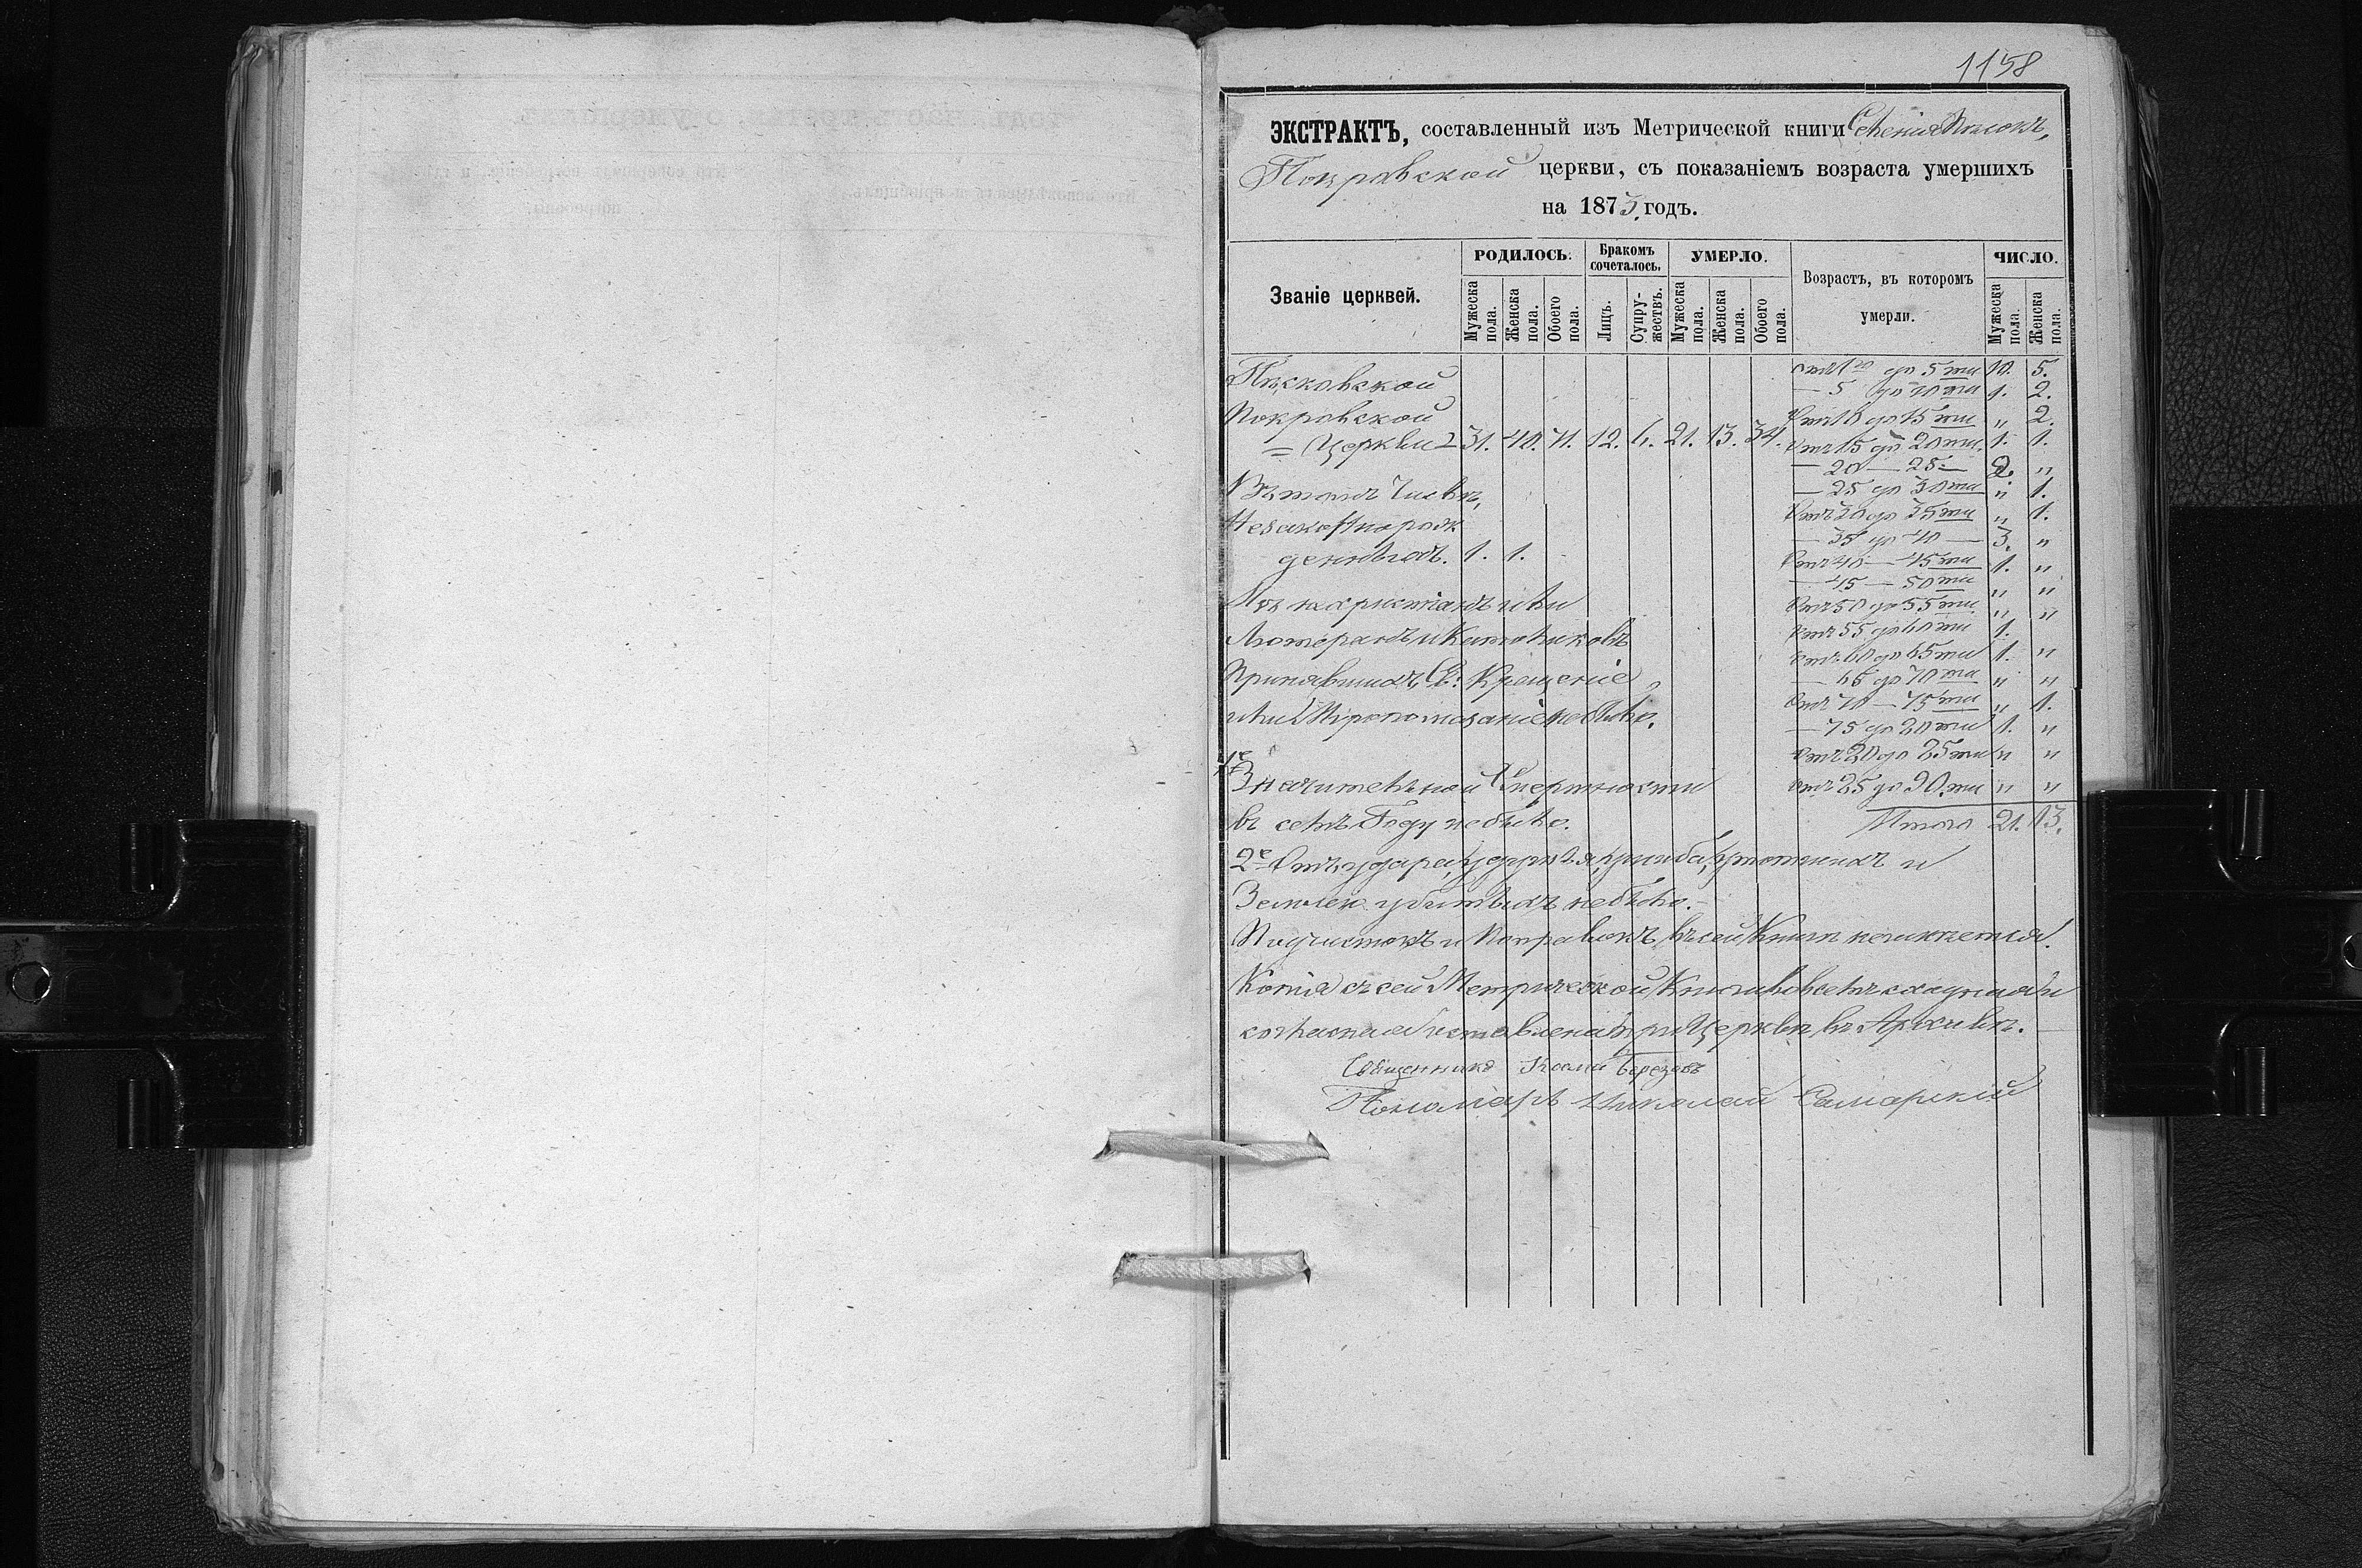 1158
ЭКСТРАКТЪ, составленный изъ Метрической книги Селенія Песокъ,
Покровской церкви, съ показаніемъ возраста умершихъ
на 1875, годъ.
Званіе церквей.
РОДИЛОСЬ.
Мужеска пола.
Женска пола.
Обоего пола.
Бракомъ сочеталось.
Лицъ.
Супружествъ.
УМЕРЛО.
Мужеска пола.
Женска пола.
Обоего пола.
Возрастъ, въ которомъ умерли.
ЧИСЛО.
Мужеска пола.
Женска пола.
Песковской
Покровской
= Церкви = 31. 40. 71. 12. 6. 21. 13. 34.
Въ томъ Числѣ,
Незаконнорож
денныхъ. 1. 1.
Изъ нехристіанъ или
Лютеранъ и Католиковъ
Принявшихъ Св: Крещеніе
или Мѵропомазаніе небыло.
1е
Значительной Смертности
въ семъ Году небыло.
отъ 1го до 5ти 10. 5.
— 5 до 10ти 1. 2.
Отъ 10 до 15ти „ 2.
Отъ 15 до 20ти. 1. 1.
— 20 — 25 — 2. „
— 25 до 30ти „ 1.
Отъ 30 до 35ти „ 1.
— 35 до 40 — 3. „
Отъ 40 — 45ти 1. „
— 45 — 50ти „ „
Отъ 50 до 55ти „ „
Отъ 55 до 60ти 1.
Отъ 60 до 65ти 1. „
— 65 до 70ти „ „
Отъ 70 — 75ти „ 1.
— 75 до 80ти 1. „
Отъ 80 до 85ти „ „
Отъ 85 до 90.ти „ „
Итого 21. 13.
2е Отъ удара, удушья, ушиба, утопшихъ и
Землею убитыхъ небыло.
Подчистокъ и Поправокъ въ сей Книгѣ неимѣется.
Копія съ сей Метрической Книги во всемъ сходная и
согласная оставлена при Церкви въ Архивѣ.
Священникъ Косма Березовъ
Пономарь Николай Самарскій